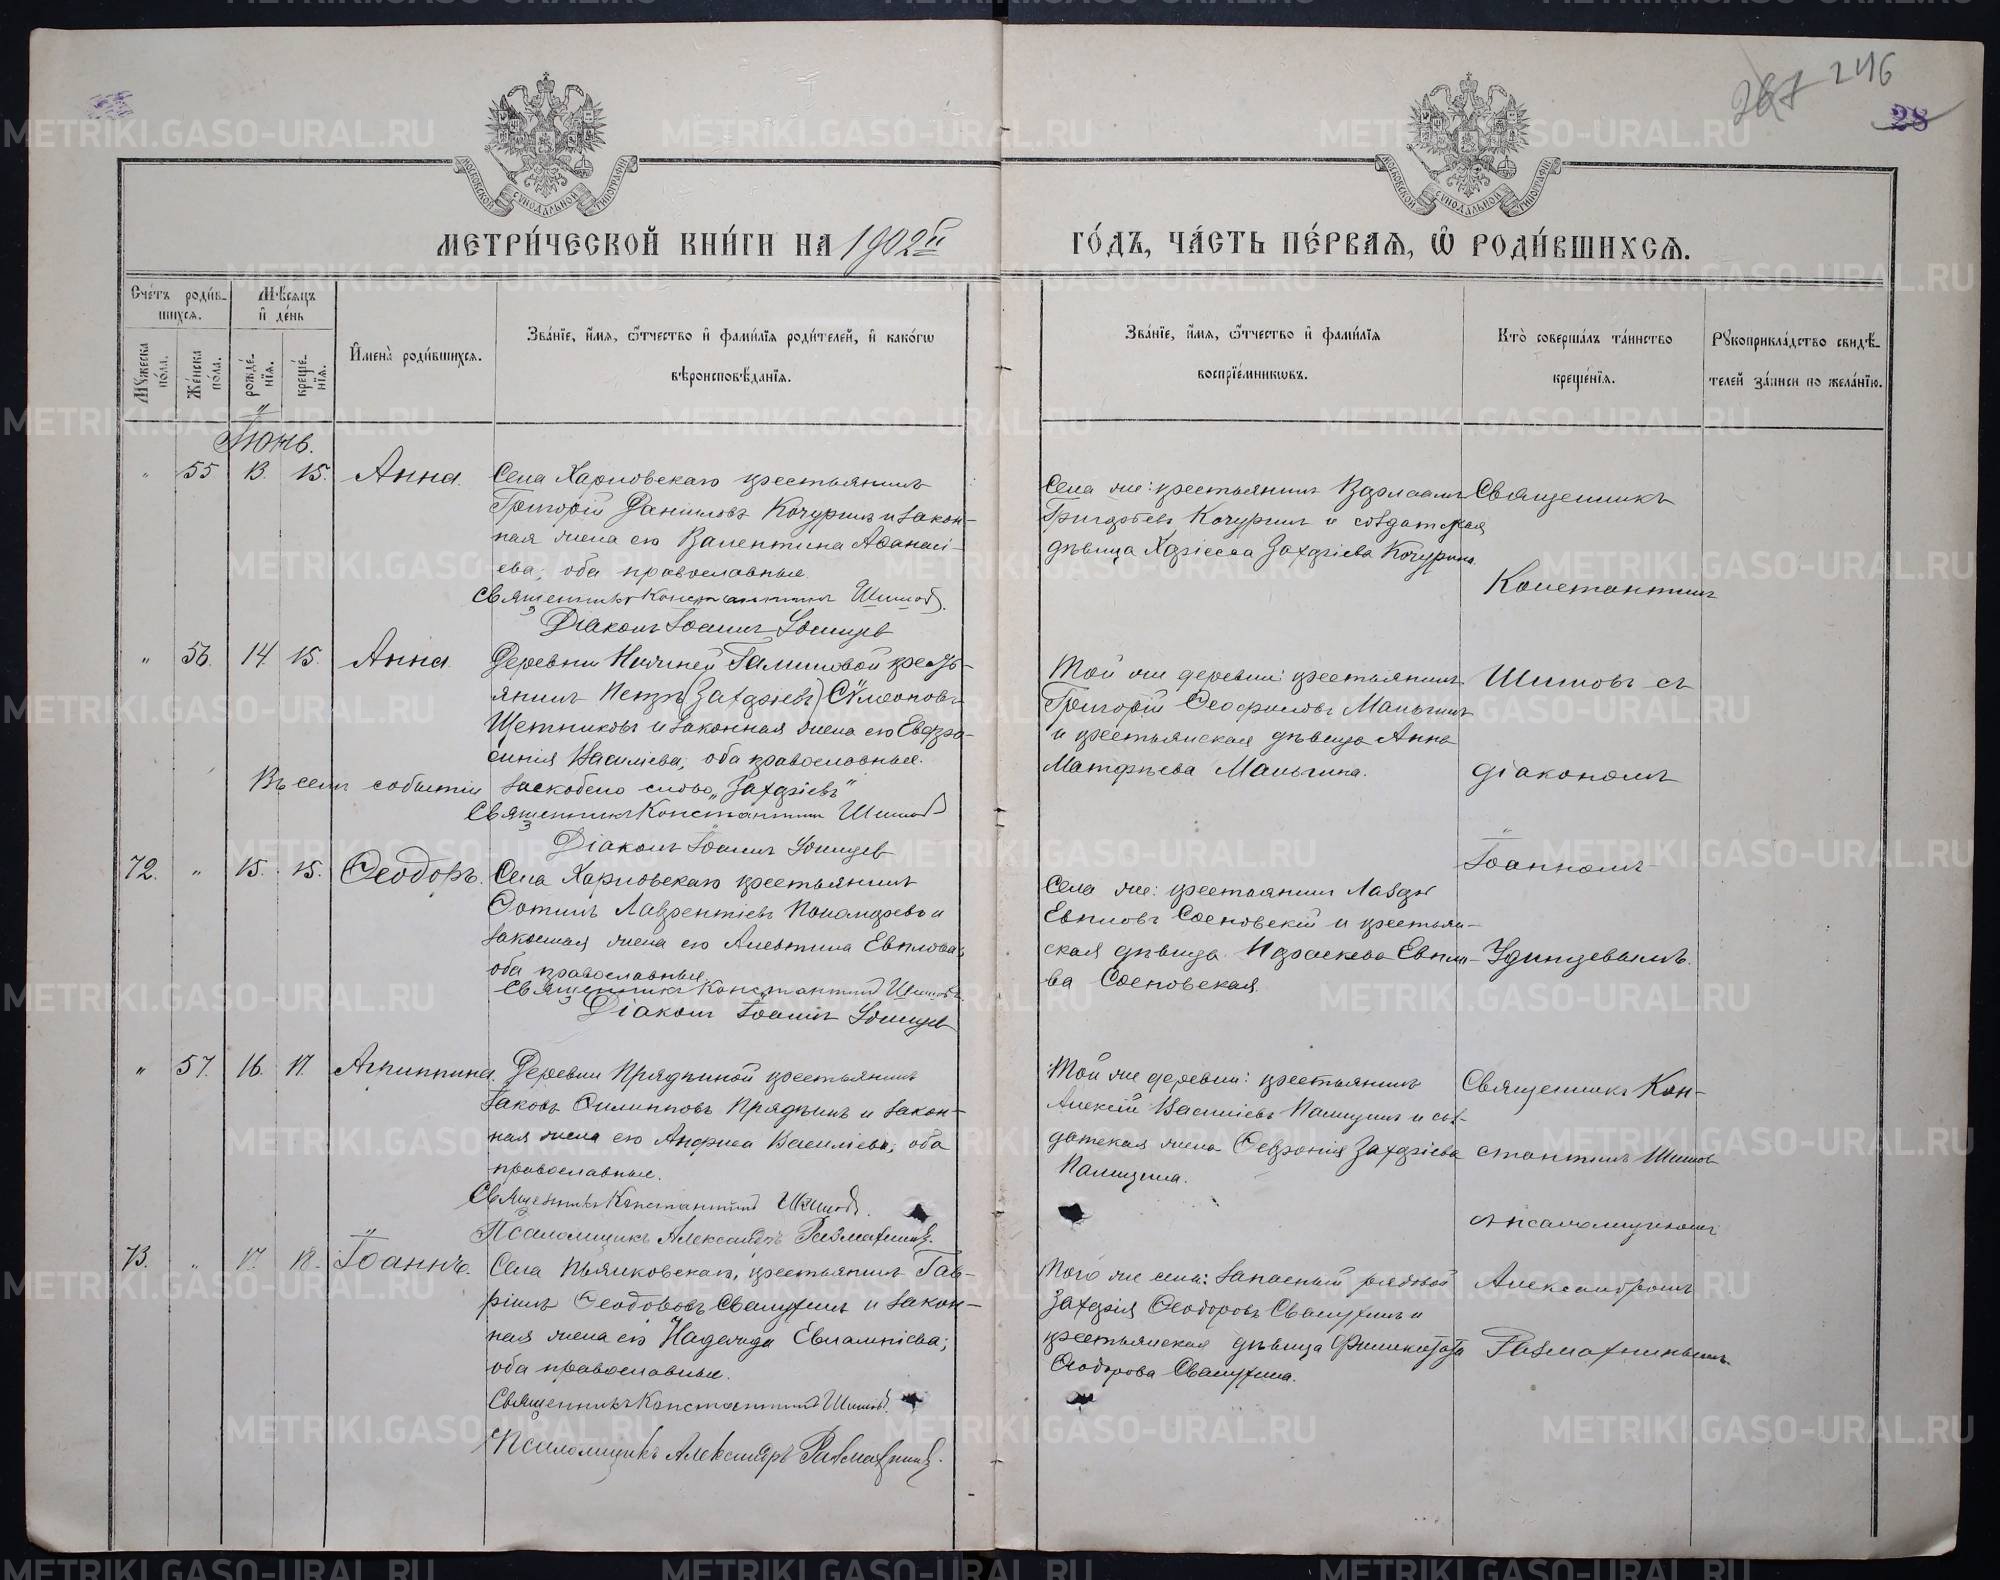 267 246
28
МОСКОВСКОЙ СУНОДАЛЬНОЙ ТИПОГРАФІИ
МОСКОВСКОЙ СУНОДАЛЬНОЙ ТИПОГРАФІИ
МЕТРИ́ЧЕСКОЙ КНИ́ГИ НА 1902й ГО́ДЪ, ЧА́СТЬ ПЕ́РВАЯ, Ѡ РОДИ́ВШИХСЯ.
Сче́тъ роди́вшихся.
Мꙋ́жеска по́ла.
Же́нска по́ла.
Мѣ́сяцъ и де́нь
рожде́нїя.
креще́нїя.
Имена̀ роди́вшихся.
Зва́нїе, и́мя, ѻ́тчество и фами́лїя роди́телей, и како́гѡ
вѣроисповѣ́данїя.
Зва́нїе, и́мя, ѻ́тчество и фами́лїя
воспрїе́мникѡвъ.
Кто̀ соверша́лъ та́инство
креще́нїя.
Рꙋкоприкла́дство свидѣ́-
телей за́писи по жела́нїю.
Іюнь.
" 55 13. 15. Анна.
Села Харловскаго крестьянинъ
Григорій Даниловъ Кочуринъ и закон-
ная жена его Валентина Аѳанасі-
ева; оба православные.
Священникъ Константинъ Шишовъ.
Діаконъ Іоаннъ Удинцев
Села же: крестьянинъ Варлаамъ
Григорьевъ Кочуринъ и солдатская
дѣвица Захаріева Кочурина.
Священникъ
Константинъ
" 56. 14. 15. Анна.
Деревни Нижней Галишовой кресть-
янинъ Петръ (Захаріевъ) Сѵмеоновъ
Щетниковъ и законная жена его Евфра-
синія Василіева; оба православные.
Въ семъ событіи заскоблено слово „Захаріевъ"
Священникъ Константинъ Шишовъ
Діаконъ Іоаннъ Удинцев
Той же деревни: крестьянинъ
Григорій Ѳеофиловъ Мальгинъ
и крестьянская дѣвица Анна
Матфѣева Мальгина.
Шишовъ съ
діакономъ
Іоанномъ
72. " 15. 15. Ѳеодоръ.
Села Харловскаго крестьянинъ
Фотинъ Лаврентіевъ Пономаревъ и
законная жена его Алевтина Евплова;
оба православные
Священникъ Константинъ Шишовъ
Діаконъ Іоаннъ Удинцев
Села же: крестьянинъ Лазарь
Евпловъ Сосновскій и крестьян-
ская дѣвица Параскева Евпло-
ва Сосновская.
Удинцевымъ.
" 57. 16. 17. Агриппина.
Деревни Прядѣиной крестьянинъ
Іаковъ Филипповъ Прядѣинъ и закон-
ная жена его Анфиса Василіева; оба
православные.
Священникъ Константинъ Шишовъ.
Псаломщикъ Александръ Размахнинъ.
Той же деревни: крестьянинъ
Алексій Василіевъ Палицинъ и сол-
датская жена Февронія Захаріева
Палицина.
Священникъ Кон-
стантинъ Шишовъ
съ псаломщикомъ
73. " 17. 18. Іоаннъ.
Села Пьянковскаго, крестьянинъ Гав-
ріилъ Ѳеодоровъ Свалухинъ и закон-
ная жена его Надежда Евлампіева;
оба православные.
Священникъ Константинъ Шишовъ.
Псаломщикъ Александръ Размахнинъ.
Того же села: запасный рядовой
Захарія Ѳеодоровъ Свалухинъ и
крестьянская дѣвица
Ѳеодорова Свалухина.
Александромъ
Размахнинымъ
METRIKI.GASO-URAL.RU